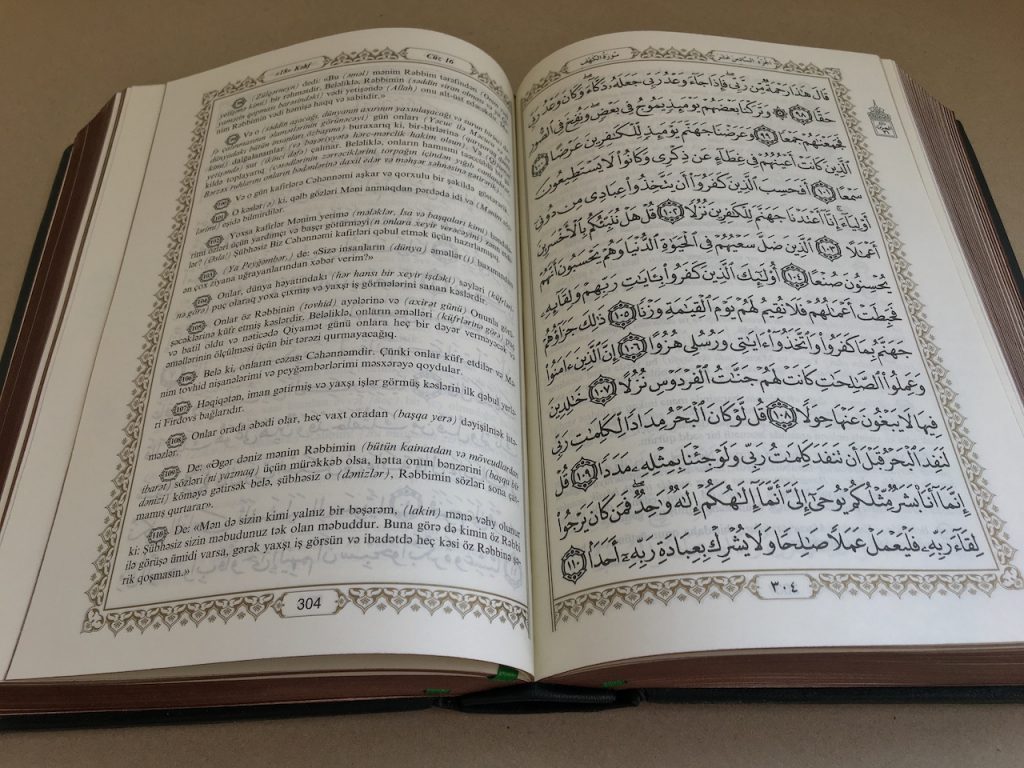 «18» Kəhf
Cüz 16
98 (Zülqərneyn) dedi: «Bu (səd) mənim Rəbbim tərəfindən
bir rəhmətdir. Beləliklə, Rəbbimin
vədi yetişəndə (Allah) onu alt-üst edəcək
nim Rəbbimin vədi həmişə haqq və sabitdir.»
99 Və o
gün onları (Yəcuc ilə Məcucu
buraxarıq ki, bir-birlərinə
dalğalanarlar (və bəşəriyyətə hərc-mərclik hakim olsun)
sur (ikinci dəfə) çalınar. Beləliklə, onların hamısını
kildə toplayarıq
Bərzəx ruhlarını onların bədənlərinə daxil edər və məhşər səhnəsinə gətirərik).
100 Və o gün kafirlərə Cəhənnəmi aşkar və qorxulu bir şəkildə göstərərik.
101 O kəslər(ə) ki, qəlb gözləri Məni anmaqdan pərdədə idi və (Mənim
lərini) eşidə bilmirdilər.
102 Yoxsa kafirlər Mənim yerimə (mələklər, İsa və başqaları kimi) bəndələ-
rimi özləri üçün yardımçı və başçı götürməyi(n onlara xeyir verəcəyini) zənn etdi-
lər? (Əsla!) Şübhəsiz Biz Cəhənnəmi kafirləri qəbul etmək üçün hazırlamışıq.
103 (Ya Peyğəmbər,) de: «Sizə insanların (dünya) əməllər(i) baxımından
ən çox ziyana uğrayanlarından xəbər verim?»
104 Onlar, dünya həyatındakı (hər hansı bir xeyir işdəki) səyləri (küfrləri-
nə görə) puç olaraq yoxa çıxmış və yaxşı iş görmələrini sanan kəslərdir.
105 Onlar öz Rəbbinin (tovhid) ayələrinə və (axirət günü) Onunla görü-
şəcəklərinə küfr etmiş kəslərdir. Beləliklə, onların əməlləri (küfrlərinə görə) puç
və batil oldu və nəticədə Qiyamət günü onlara heç bir dəyər verməyəcək və
əməllərinin ölçülməsi üçün bir tərəzi qurmayacağıq.
106 Belə ki, onların cəzası Cəhənnəmdir. Çünki onlar küfr etdilər və Mə-
nim tovhid nişanələrimi və peyğəmbərlərimi məsxərəyə qoydular.
107 Həqiqətən, iman gətirmiş və yaxşı işlər görmüş kəslərin ilk qəbul yerlə-
ri Firdovs bağlarıdır.
108 Onlar orada əbədi olar, heç vaxt oradan (başqa yerə) dəyişilmək istə-
məzlər.
109 De: «Əgər dəniz mənim Rəbbimin (bütün kainatdan və mövcudlardan
ibarət) sözləri(ni yazmaq) üçün mürəkkəb olsa, hətta onun bənzərini (başqa bir
dənizi) köməyə gətirsək belə, şübhəsiz o (dənizlər), Rəbbimin sözləri sona çat-
mamış qurtarar».
110 De: «Mən də sizin kimi yalnız bir bəşərəm, (lakin) mənə vəhy olunur
ki: Şübhəsiz sizin məbudunuz tək olan məbuddur. Buna görə də kimin öz Rəbbi
ilə görüşə ümidi varsa, gərək yaxşı iş görsün və ibadətdə heç kəsi öz Rəbbinə şə-
rik qoşmasın.»
304
سُورَةُ الكَهْف
الجُزءُ السَّادِسَ عَشَرَ
قَالَ هَٰذَا رَحْمَةٌ مِّن رَّبِّي فَإِذَا جَاءَ وَعْدُ رَبِّي جَعَلَهُ دَكَّاءَ وَكَانَ وَعْدُ رَبِّي
حَقًّا ٩٨ وَتَرَكْنَا بَعْضَهُمْ يَوْمَئِذٍ يَمُوجُ فِي بَعْضٍ وَنُفِخَ فِي الصُّورِ
فَجَمَعْنَاهُمْ جَمْعًا ٩٩ وَعَرَضْنَا جَهَنَّمَ يَوْمَئِذٍ لِّلْكَافِرِينَ عَرْضًا ١٠٠
الَّذِينَ كَانَتْ أَعْيُنُهُمْ فِي غِطَاءٍ عَن ذِكْرِي وَكَانُوا لَا يَسْتَطِيعُونَ
سَمْعًا ١٠١ أَفَحَسِبَ الَّذِينَ كَفَرُوا أَن يَتَّخِذُوا عِبَادِي مِن دُونِي
أَوْلِيَاءَ إِنَّا أَعْتَدْنَا جَهَنَّمَ لِلْكَافِرِينَ نُزُلًا ١٠٢ قُلْ هَلْ نُنَبِّئُكُم بِالْأَخْسَرِينَ
أَعْمَالًا ١٠٣ الَّذِينَ ضَلَّ سَعْيُهُمْ فِي الْحَيَوٰةِ الدُّنْيَا وَهُمْ يَحْسَبُونَ أَنَّهُمْ
يُحْسِنُونَ صُنْعًا ١٠٤ أُولَٰئِكَ الَّذِينَ كَفَرُوا بِآيَاتِ رَبِّهِمْ وَلِقَائِهِ
فَحَبِطَتْ أَعْمَالُهُمْ فَلَا نُقِيمُ لَهُمْ يَوْمَ الْقِيَامَةِ وَزْنًا ١٠٥ ذَٰلِكَ جَزَاؤُهُمْ
جَهَنَّمُ بِمَا كَفَرُوا وَاتَّخَذُوا آيَاتِي وَرُسُلِي هُزُوًا ١٠٦ إِنَّ الَّذِينَ آمَنُوا
وَعَمِلُوا الصَّالِحَاتِ كَانَتْ لَهُمْ جَنَّاتُ الْفِرْدَوْسِ نُزُلًا ١٠٧ خَالِدِينَ
فِيهَا لَا يَبْغُونَ عَنْهَا حِوَلًا ١٠٨ قُل لَّوْ كَانَ الْبَحْرُ مِدَادًا لِّكَلِمَاتِ رَبِّي
لَنَفِدَ الْبَحْرُ قَبْلَ أَن تَنفَدَ كَلِمَاتُ رَبِّي وَلَوْ جِئْنَا بِمِثْلِهِ مَدَدًا ١٠٩ قُلْ
إِنَّمَا أَنَا بَشَرٌ مِّثْلُكُمْ يُوحَىٰ إِلَيَّ أَنَّمَا إِلَٰهُكُمْ إِلَٰهٌ وَاحِدٌ فَمَن كَانَ يَرْجُوا
لِقَاءَ رَبِّهِ فَلْيَعْمَلْ عَمَلًا صَالِحًا وَلَا يُشْرِكْ بِعِبَادَةِ رَبِّهِ أَحَدًا ١١٠
٣٠٤